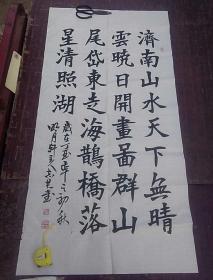 濟南山水天下無晴
雲曉日開畫啚群山
尾岱東走海鵲橋落
星清照湖
歲在丁酉年之初秋